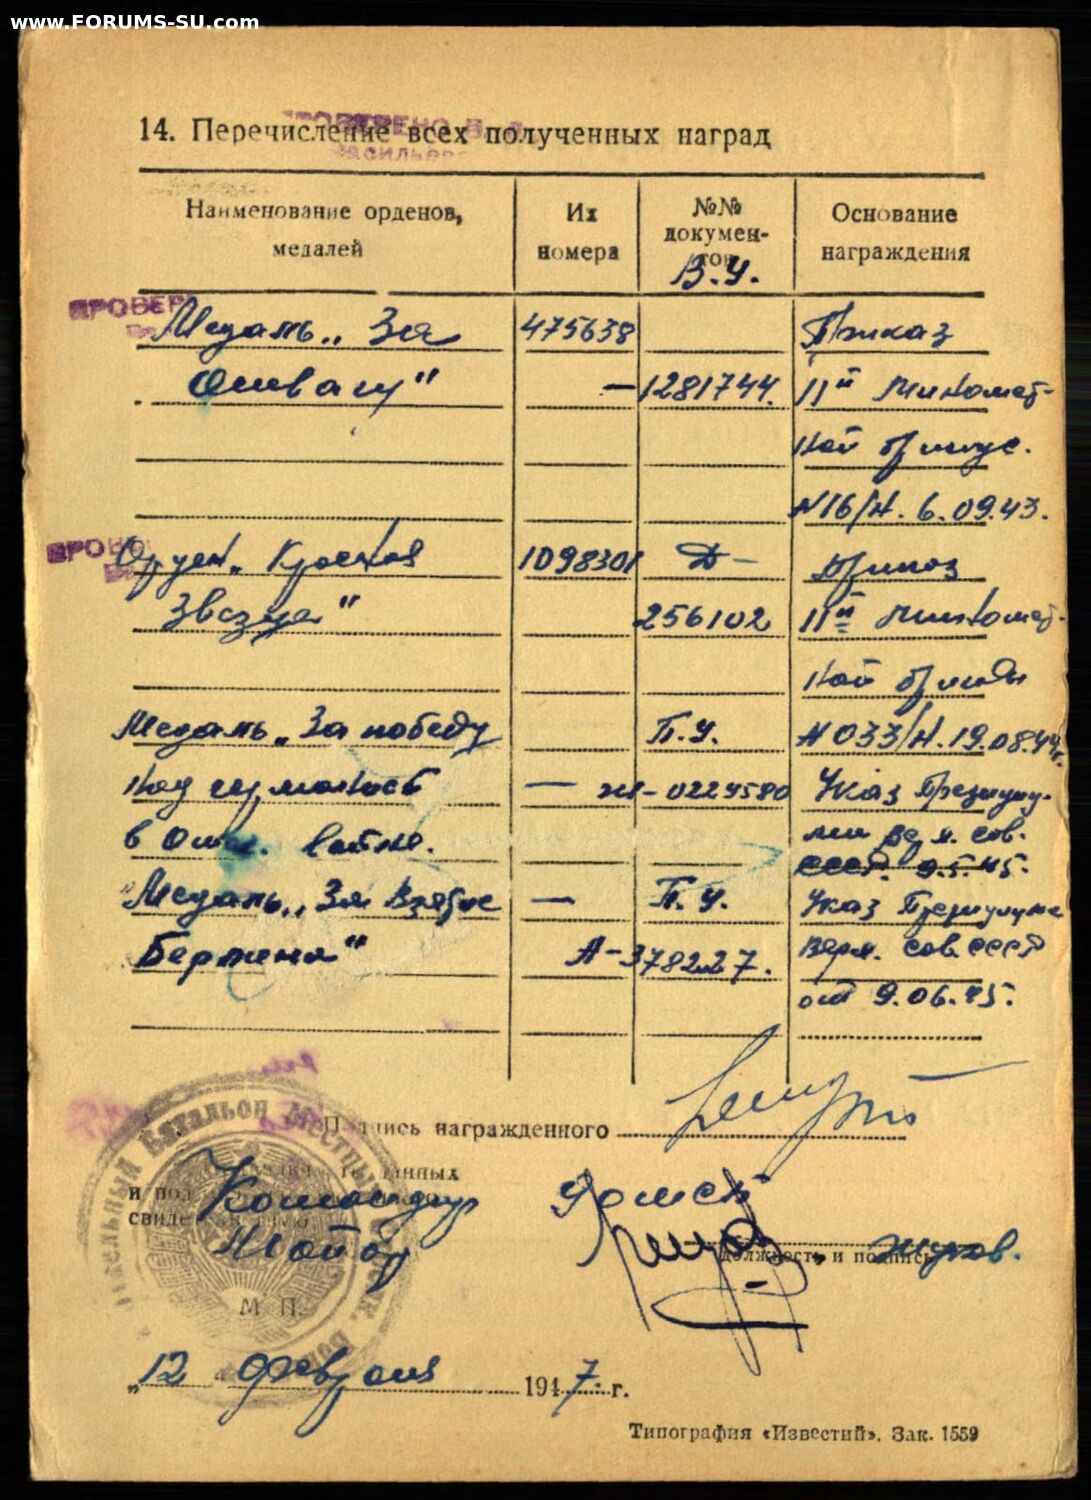 www.FORUMS-SU.com
14. Перечисление всех полученных наград
Наименование орденов, медалей
Их номера
№№ документов
Основание награждения
В.У.
ПРОВЕР
Медаль „За 475638 Приказ
Отвагу" — 1281744. 11й Миномет-
ной бриг.
N16/н. 6.09.43.
Орден „Красная 1098301 Д— Приказ
Звезда" 256102 11й Миномет-
ной бригады
Медаль „За победу П.У. N033/н. 19.08.44г.
над германией — 0227580 Указ Президиу-
в Отеч. войне. ма Сов.
СССР. 9.5.45.
Медаль „За взятие — П.У. Указ Президиума
Берлина" А-378227. Верх. Сов СССР
от 9.06.45.
Подпись награжденного
Командир
Майор
должность и подпись
М П.
„12 февраля 1947 г.
Типография «Известий». Зак. 1559